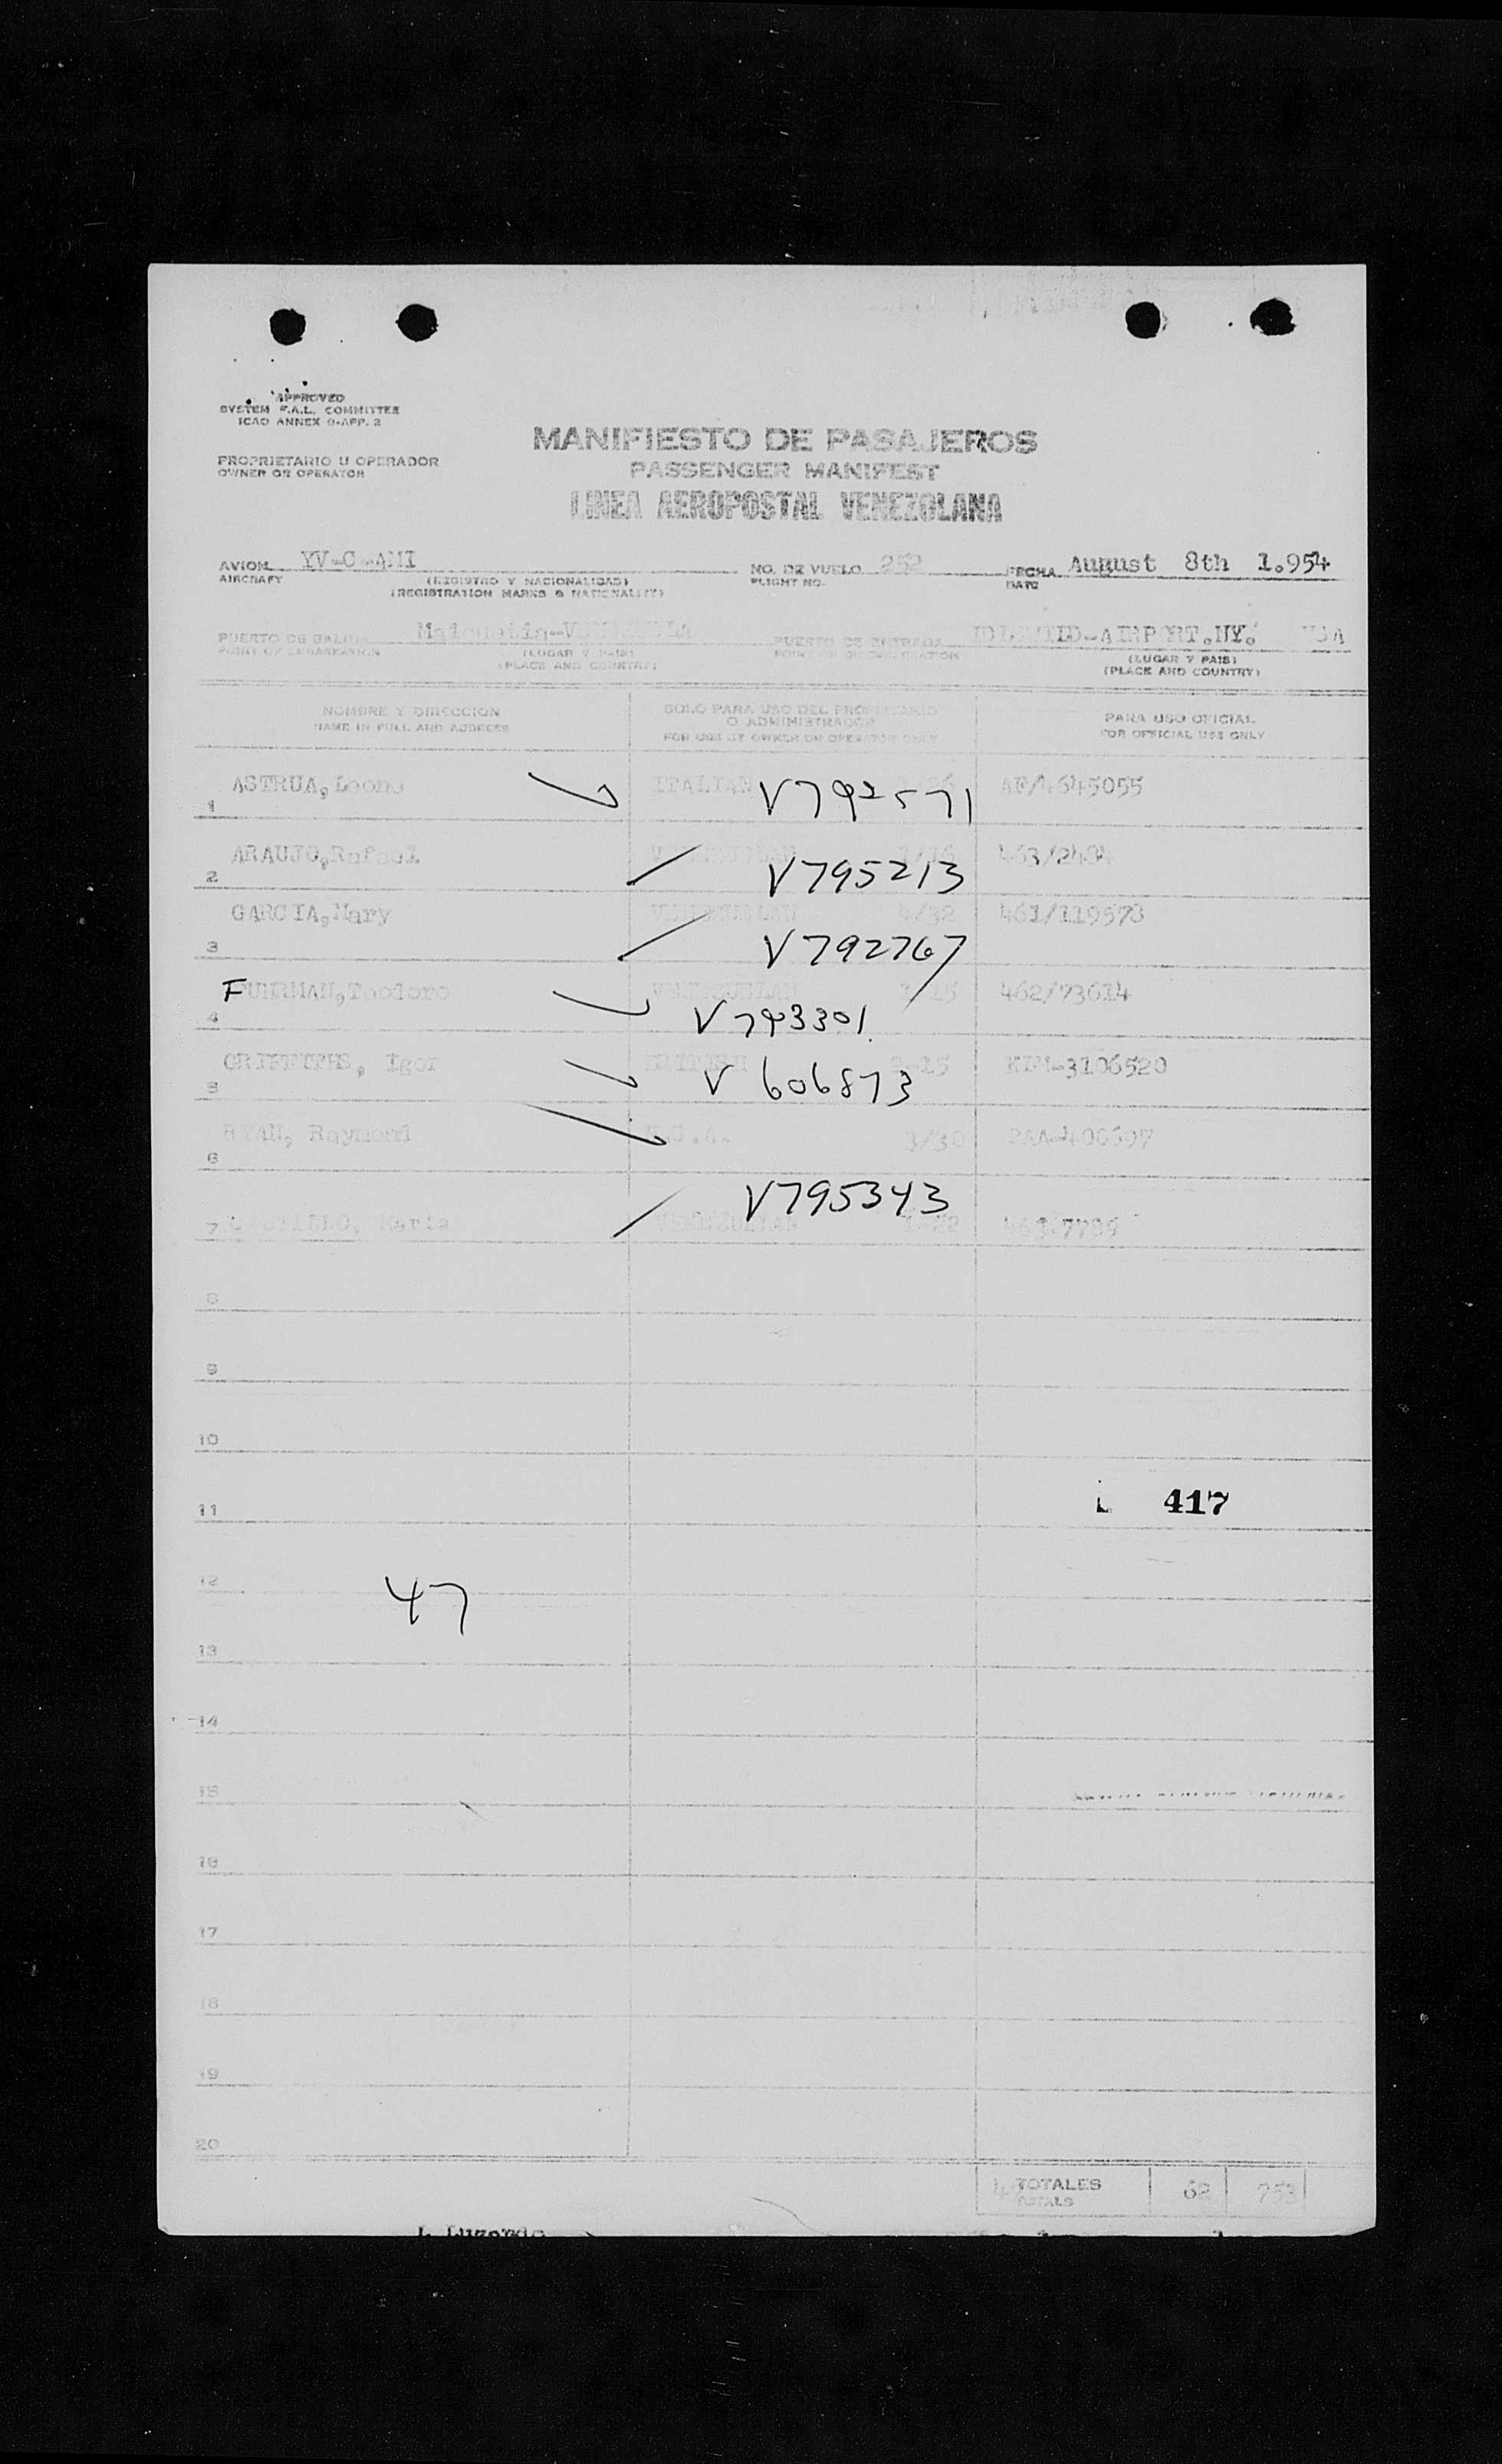 APPROVED
SYSTEM F.A.L. COMMITTEE
ICAO ANNEX 9-APP. 2
MANIFIESTO DE PASAJEROS
PROPRIETARIO U OPERADOR
OWNER OR OPERATOR
PASSENGER MANIFEST
LINEA AEROPOSTAL VENEZOLANA
AVION YV-C-AMI NO. DE VUELO 252 FECHA August 8th 1.954
AIRCRAFT (REGISTRO Y NACIONALIDAD) FLIGHT NO. DATE
(REGISTRATION MARKS & NATIONALITY)
PUERTO DE SALIDA Maiquetia-VENEZUELA PUERTO DE ENTRADA IDLEWILD-AIRPORT.NY. USA
POINT OF EMBARKATION (LUGAR Y PAIS) (LUGAR Y PAIS)
(PLACE AND COUNTRY) (PLACE AND COUNTRY)
NOMBRE Y DIRECCION SOLO PARA USO DEL PROPIETARIO PARA USO OFICIAL
NAME IN FULL AND ADDRESS O ADMINISTRADOR FOR OFFICIAL USE ONLY
FOR USE BY OWNER OR OPERATOR ONLY
1 ASTRUA, Leone ITALIAN V792571 AF/4645055
2 ARAUJO,Rafael VENEZUELAN V795213 463/2484
3 GARCIA,Mary VENEZUELAN 4/32 V792767 461/119578
4 FUHRMAN,Teodoro VENEZUELAN V793301 462/73614
5 GRIFFITHS, Igor BRITISH V 606873 KIN-3106520
6 RYAN, Raymond U.S.A. 3/30 PAA-400597
V795343
7 CASTILLO, Maria VENEZUELAN
8
9
10
11 L 417
12 47
13
14
15
16
17
18
19
20
TOTALES 62 753
TOTALS